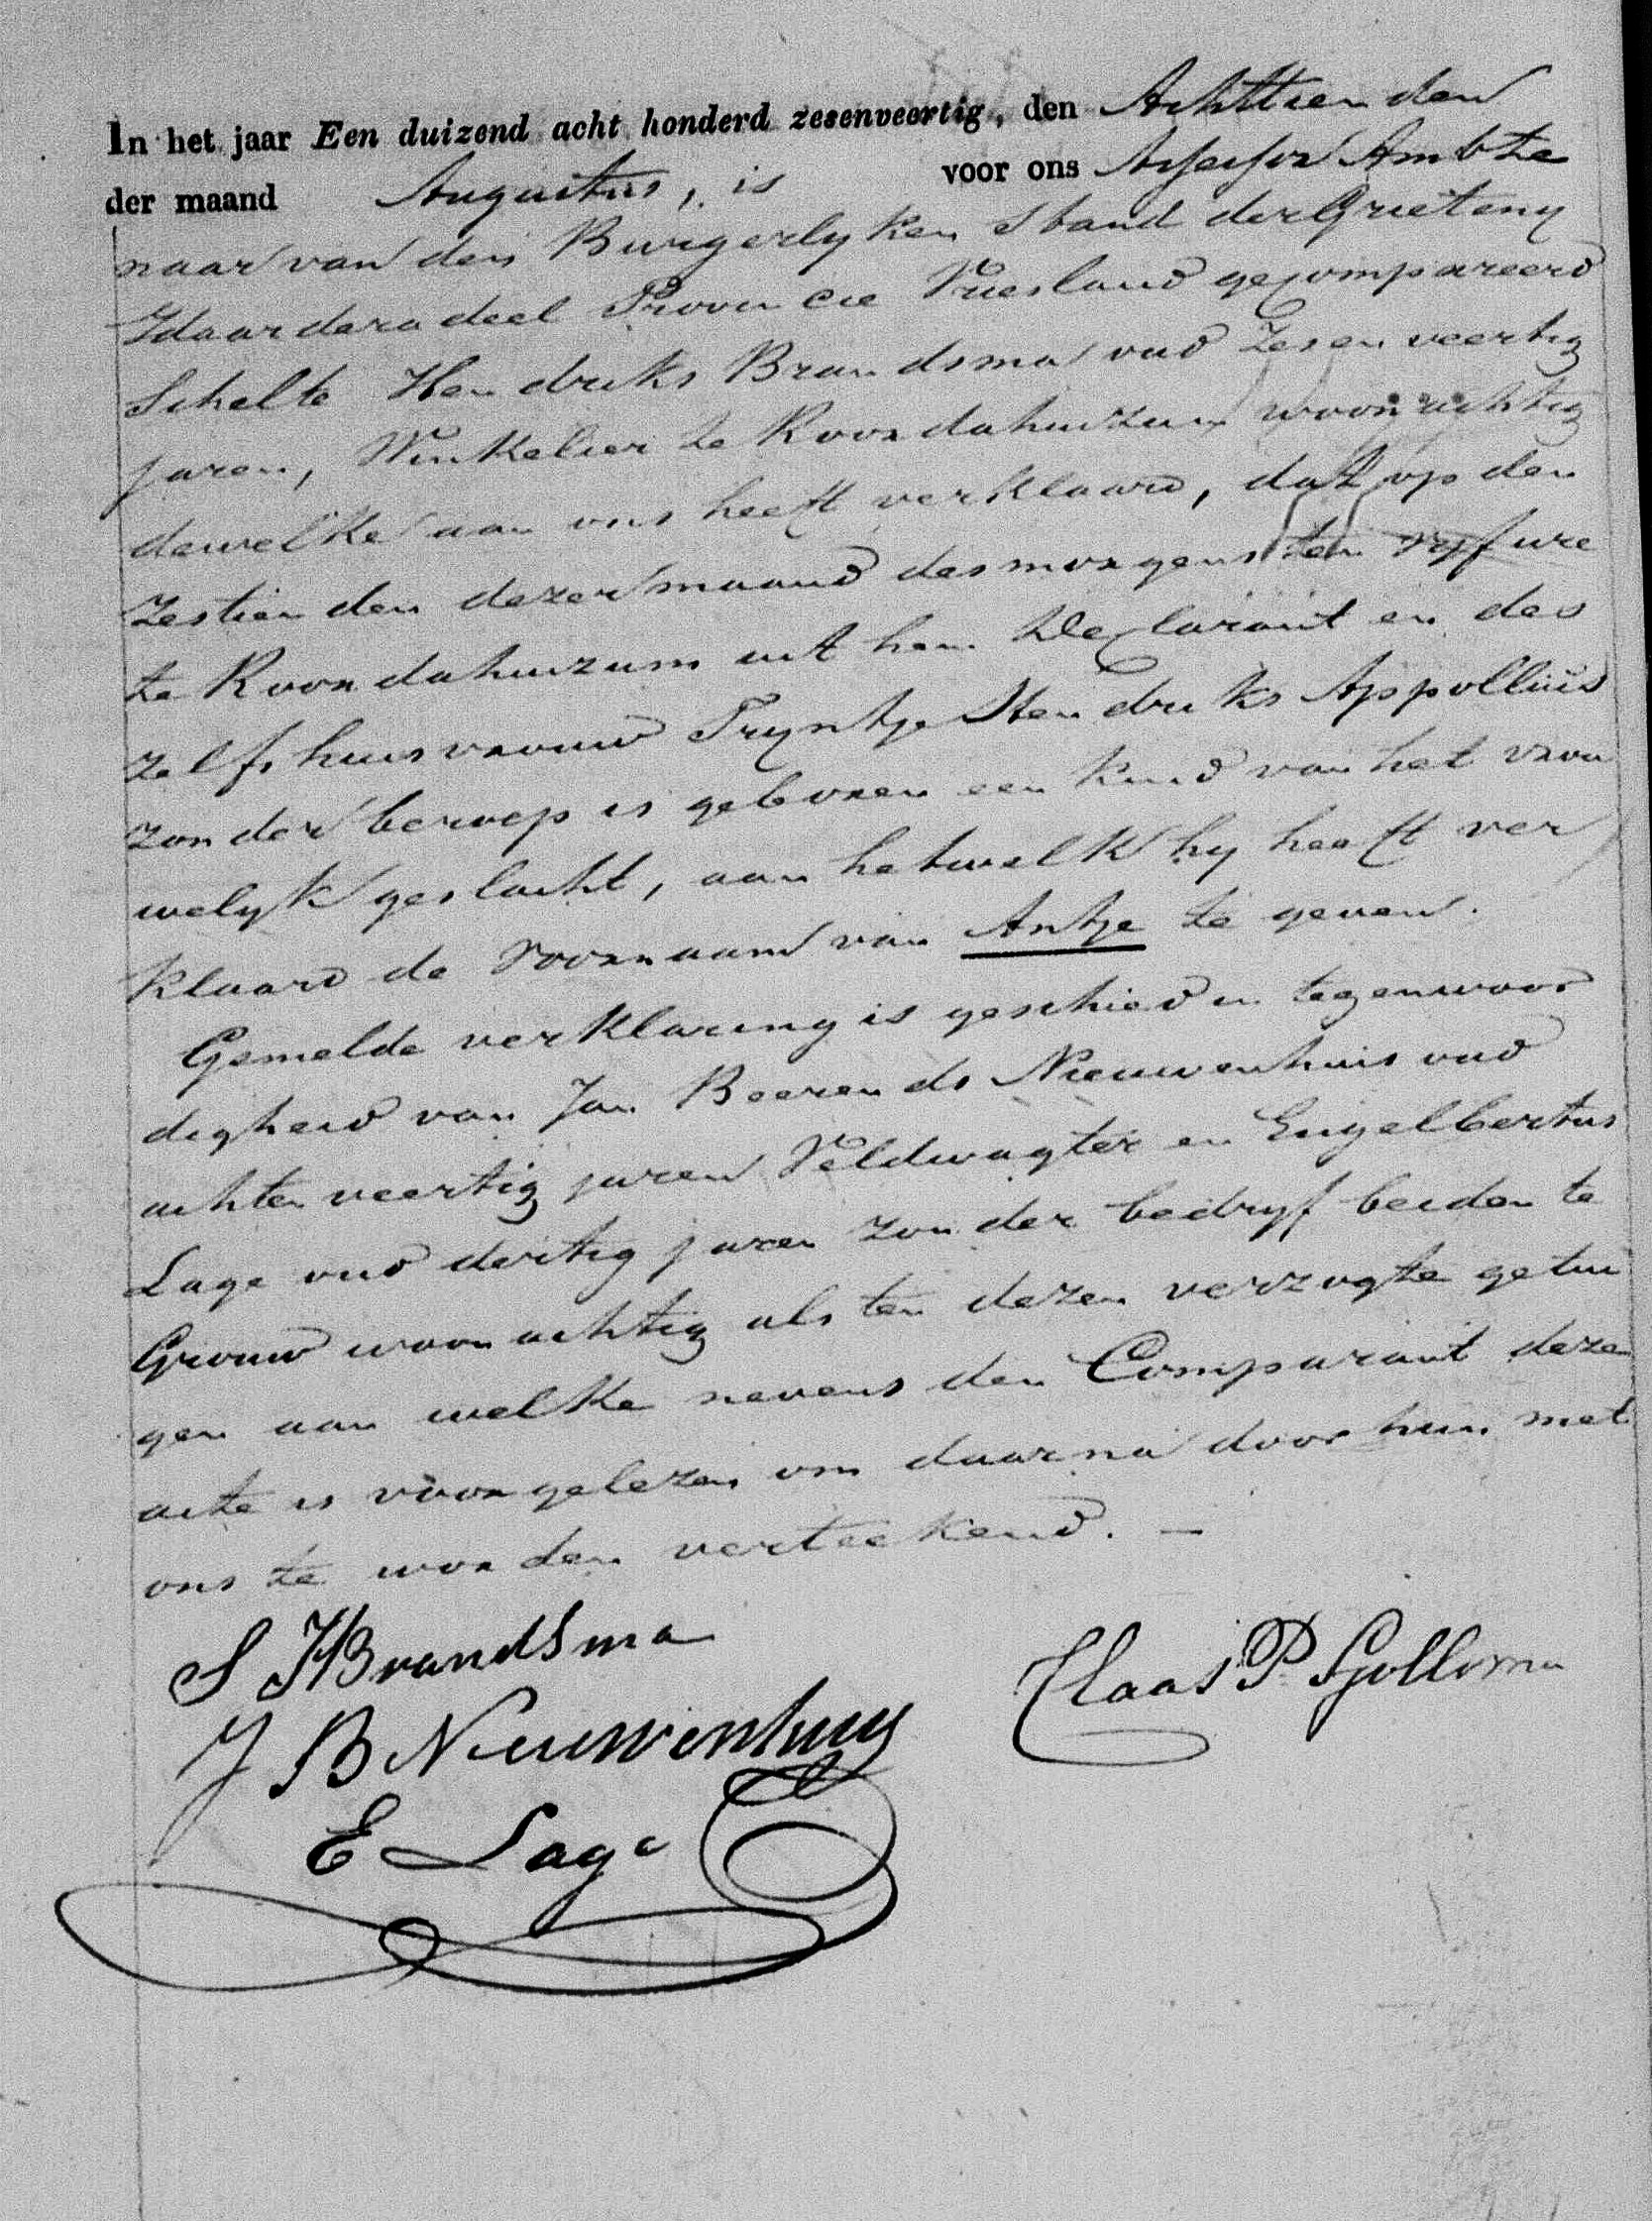 In het jaar Een duizend acht honderd zesenveertig, den Achttienden
der maand Augustus, is voor ons Assessor Ambte
naar van den Burgerlyken Stand der Grieteny
Idaarderadeel Provincie Vriesland gecompareerd
Schelte Hendriks Brandsma oud Zesenveertig
jaren, Winkelier te Roordahuizum woonachtig
dewelke aan ons heeft verklaard, dat op den
Zestienden dezer maand des morgens ten vyf ure
te Roordahuizum uit hem Declarant en des
zelfs huisvrouw Tryntje Hendriks Appollius
zonder beroep is geboren een kind van het vrou
welyk geslacht, aan hetwelk hy heeft ver
klaard de Voornaam van Antje te geven.
Gemelde verklaring is geschied in tegenwoor
digheid van Jan Beerends Nieuwenhuis oud
achtenveertig jaren Veldwagter en Engelbertus
Lage oud dertig jaren zonder bedryf beiden te
Grouw woonachtig als ten dezen verzogte getui
gen aan welke nevens den Comparant deze
acte is voorgelezen om daarna door hun met
ons te worden verteekend. —
S H Brandsma
Claas P Gollema
J B Nieuwenhuis
E Lage